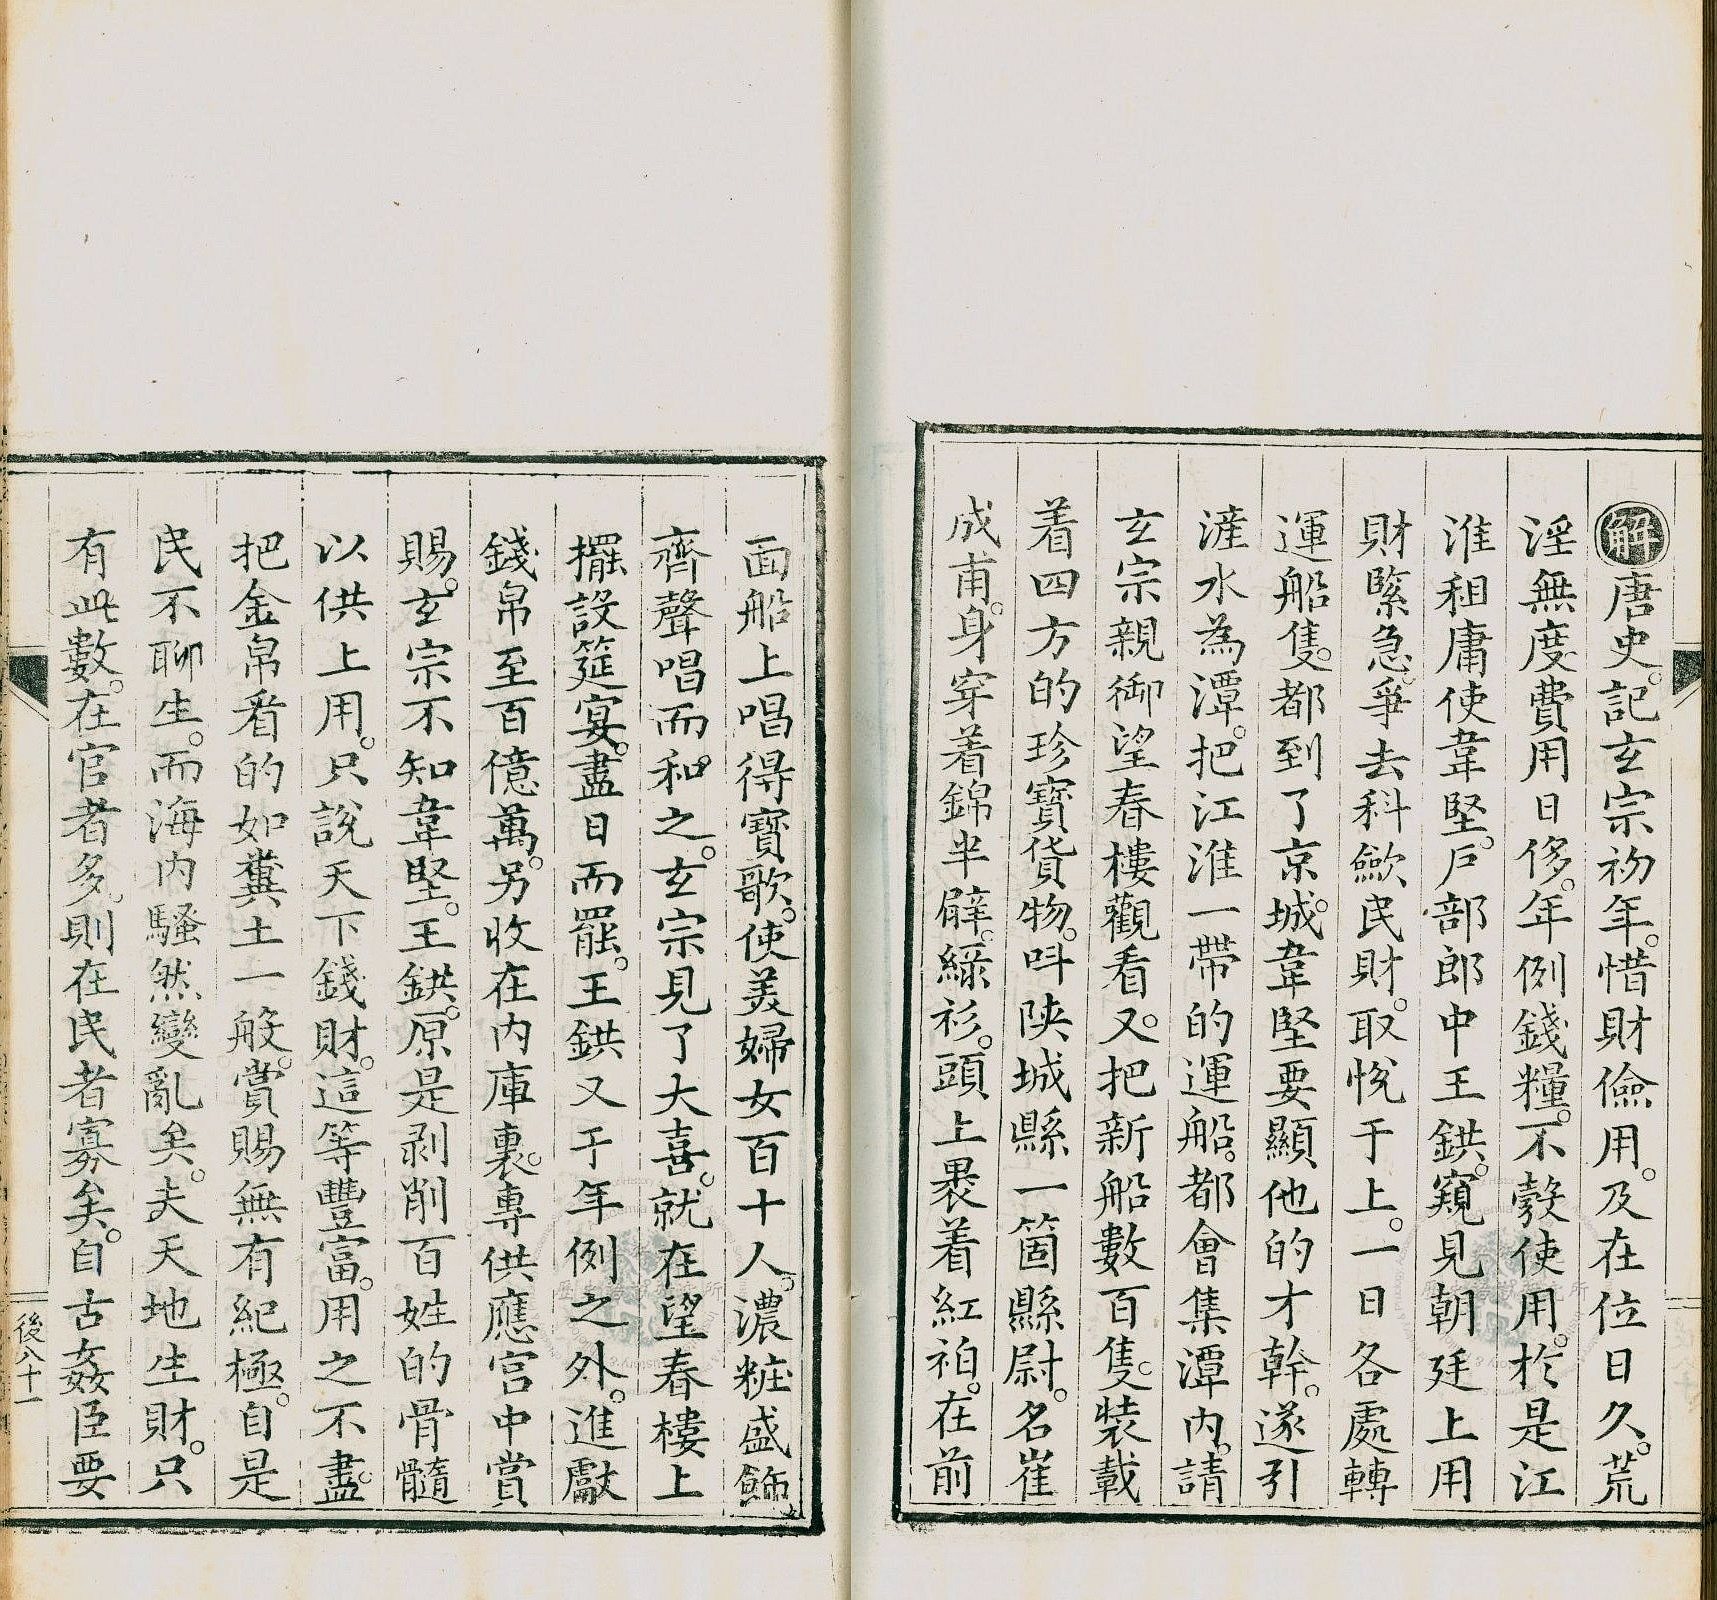 解唐史。記玄宗初年。惜財儉用。及在位日久。荒
淫無度。費用日侈。年例錢糧。不彀使用。於是江
淮租庸使韋堅。戶部郎中王鉷。窺見朝廷上用
財緊急。爭去科歛民財。取悅于上。一日各處轉
運船隻。都到了京城。韋堅要顯他的才幹。遂引
滻水為潭。把江淮一帶的運船。都會集潭內。請
玄宗親御望春樓觀看。又把新船數百隻。裝載
着四方的珍寶貨物。呌陝城縣一箇縣尉。名崔
成甫。身穿着錦半臂。綠衫。頭上裹着紅袙。在前
面船上唱得寶歌。使美婦女百十人。濃粧盛飾。
齊聲唱而和之。玄宗見了大喜。就在望春樓上
擺設筵宴。盡日而罷。王鉷又于年例之外。進獻
錢帛至百億萬。另收在內庫裏。專供應宮中賞
賜。玄宗不知韋堅。王鉷。原是剥削百姓的骨髓
以供上用。只說天下錢財。這等豐富。用之不盡。
把金帛看的如糞土一般。賞賜無有紀極。自是
民不聊生。而海內騷然變亂矣。夫天地生財。只
有此數。在官者多。則在民者寡矣。自古姦臣要
後八十一